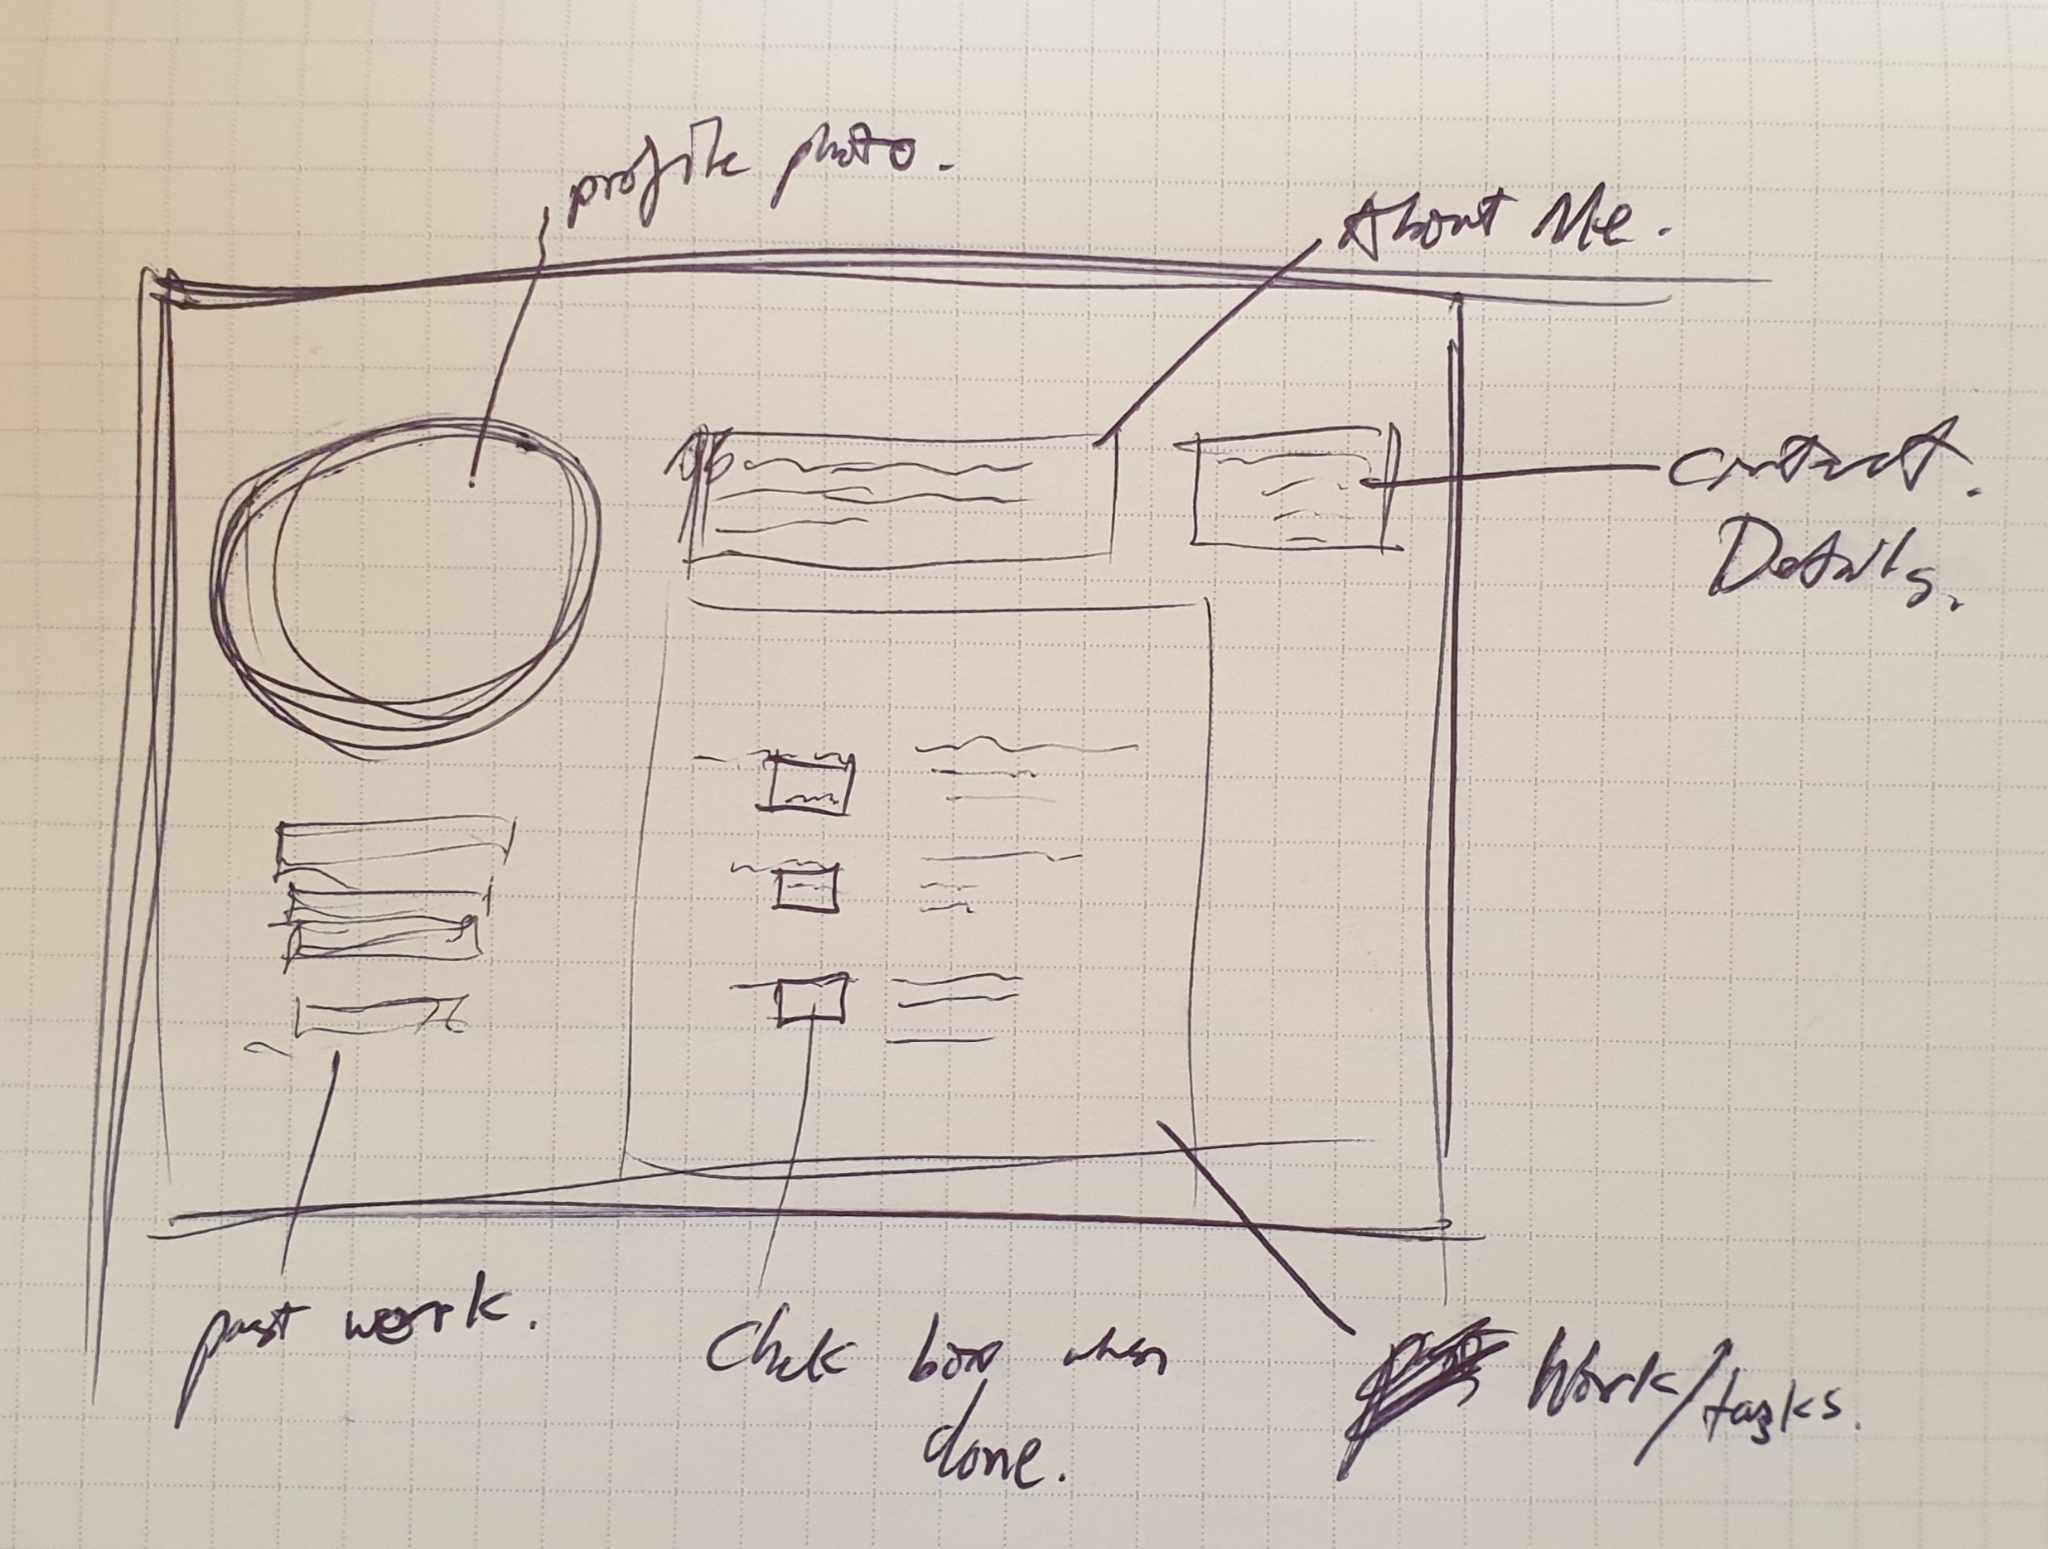 profile photo.
About Me.
Contact.
Details.
past work.
Check box when
done.
Work/tasks.